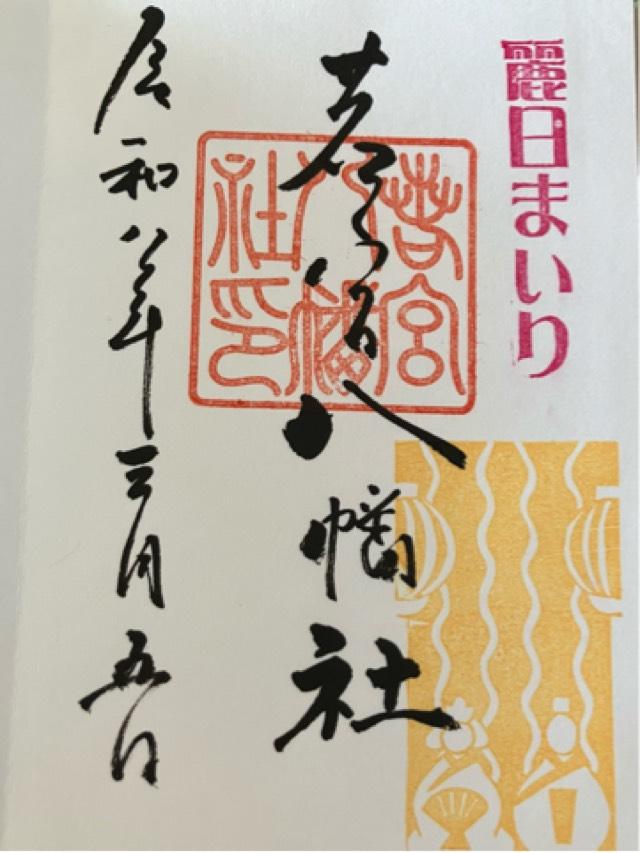 麗日まいり
若宮八幡社
若宮八幡社印
令和八年三月五日